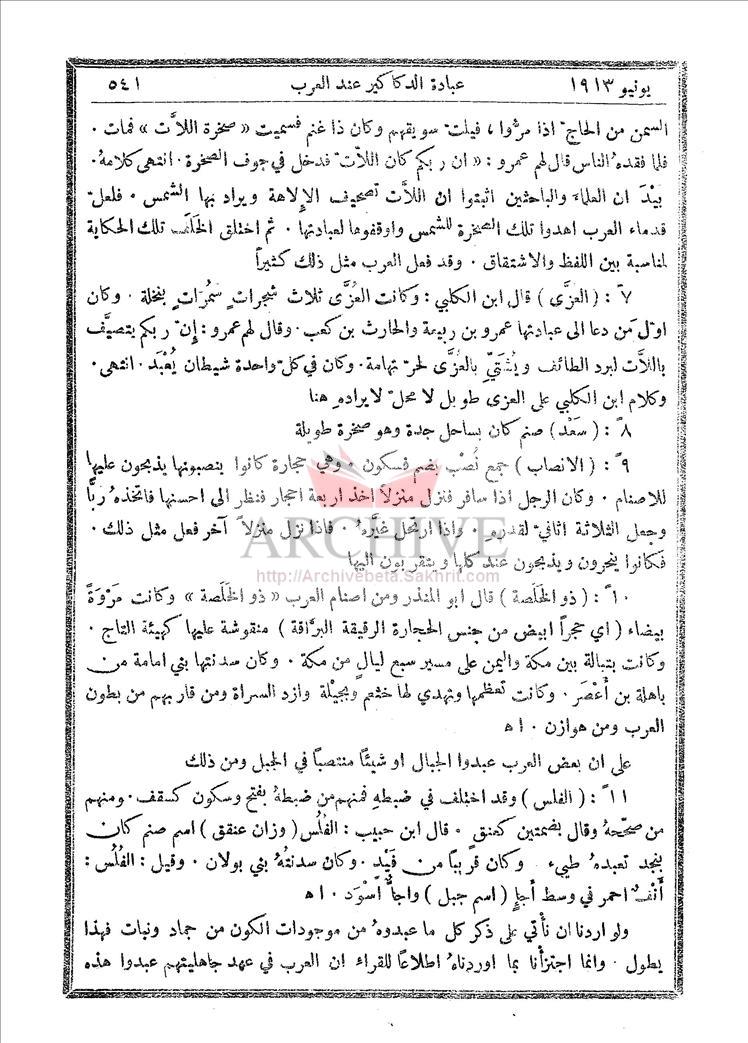 يونيو ١٩١٣ عبادة الدكاكير عند العرب ٥٤١
السمن من الحاج اذا مرُّوا ، فيلت سويقهم وكان ذا غنم فسميت « صخرة اللاَّت » فمات ٠
فلما فقدهُ الناس قال لهم عمرو : « ان ربكم كان اللاَّت فدخل في جوف الصخرة ٠ انتهى كلامهُ ٠
بَيْدَ ان العلماء والباحثين اثبتوا ان اللاَّت تصحيف الإلاهة ويراد بها الشمس ٠ فلعلَّ
قدماء العرب اهدوا تلك الصخرة للشمس واوقفوها لعبادتها ٠ ثم اختلق الخَلَف تلك الحكاية
لمناسبة بين اللفظ والاشتقاق ٠ وقد فعل العرب مثل ذلك كثيراً
٧ً : ( العزَّى ) قال ابن الكلبي : وكانت العُزَّى ثلاث شجرات سَمُرَاتٍ بنخلة ٠ وكان
اوَّل مَن دعا الى عبادتها عمرو بن ربيعة والحارث بن كعب ٠ وقال لهم عمرو : إِنَّ ربكم يتصيَّف
باللاَّت لبرد الطائف ويُشَتِّي بالعُزَّى لحرّ تهامة ٠ وكان في كلّ واحدة شيطان يُعْبَد ٠ انتهى ٠
وكلام ابن الكلبي على العزى طويل لا محلَّ لايراده هنا
٨ً : ( سَعْد ) صنم كان بساحل جدة وهو صخرة طويلة
٩ً : ( الانصاب ) جمع نُصْب بضم فسكون ٠ وهي حجارة كانوا ينصبونها يذبحون عليها
للاصنام ٠ وكان الرجل اذا سافر فنزل منزلاً اخذ اربعة احجار فنظر الى احسنها فاتخذهُ ربًّا
وجعل الثلاثة اثافيَّ لقدره ٠ واذا ارتحل غيَّرهُ ٠ فاذا نزل منزلاً آخر فعل مثل ذلك ٠
فكانوا ينحرون ويذبحون عند كلها ويتقربون اليها
ARCHIVE
http://Archivebeta.Sakhrit.com
١٠ً : ( ذو الخَلَصة ) قال ابو المنذر ومن اصنام العرب « ذو الخَلَصة » وكانت مَرْوَةً
بيضاء ( اي حجراً ابيض من جنس الحجارة الرقيقة البرَّاقة ) منقوشة عليها كهيئة التاج ٠
وكانت بتبالة بين مكة واليمن على مسير سبع ليال من مكة ٠ وكان سدنتها بني امامة من
باهلة بن أَعْصَر ٠ وكانت تعظمها وتهدي لها خثعم وبَجيْلة وازد السراة ومن قاربهم من بطون
العرب ومن هوازن ٠ ا ه
على ان بعض العرب عبدوا الجبال او شيئًا منتصبًا في الجبل ومن ذلك
١١ً : ( الفلس ) وقد اختلف في ضبطهِ فمنهم من ضبطهُ بفتح وسكون كسقف ٠ ومنهم
من صحّحهُ وقال بضمتين كعنق ٠ قال ابن حبيب : الفُلُس ( وزان عنقق ) اسم صنم كان
بنجد تعبدهُ طييء ٠ وكان قريبًا من فَيْد ٠ وكان سدنتهُ بني بولان ٠ وقيل : الفُلُس :
أَنْفٌ احمر في وسط أَجإٍ ( اسم جبل ) واجأٌ أَسْوَد ٠ ا ه
ولو اردنا ان نأتي على ذكر كل ما عبدوهُ من موجودات الكون من جماد ونبات فهذا
يطول ٠ وانما اجتزأنا بما اوردناهُ اطلاعًا للقراء ان العرب في عهد جاهليتهم عبدوا هذه